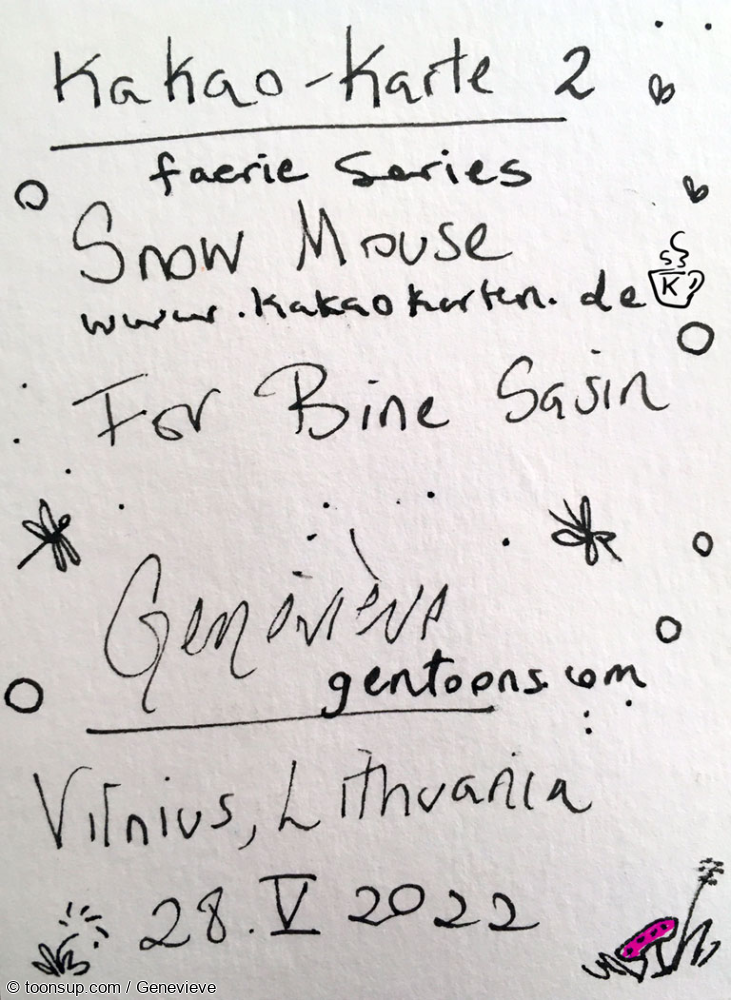 Kakao-Karte 2
faerie Series
Snow Mouse
www.kakaokarten.de
K
For Bine Sasin
Genéviève
gentoons.com
Vilnius, Lithuania
28.V 2022
© toonsup.com / Genevieve